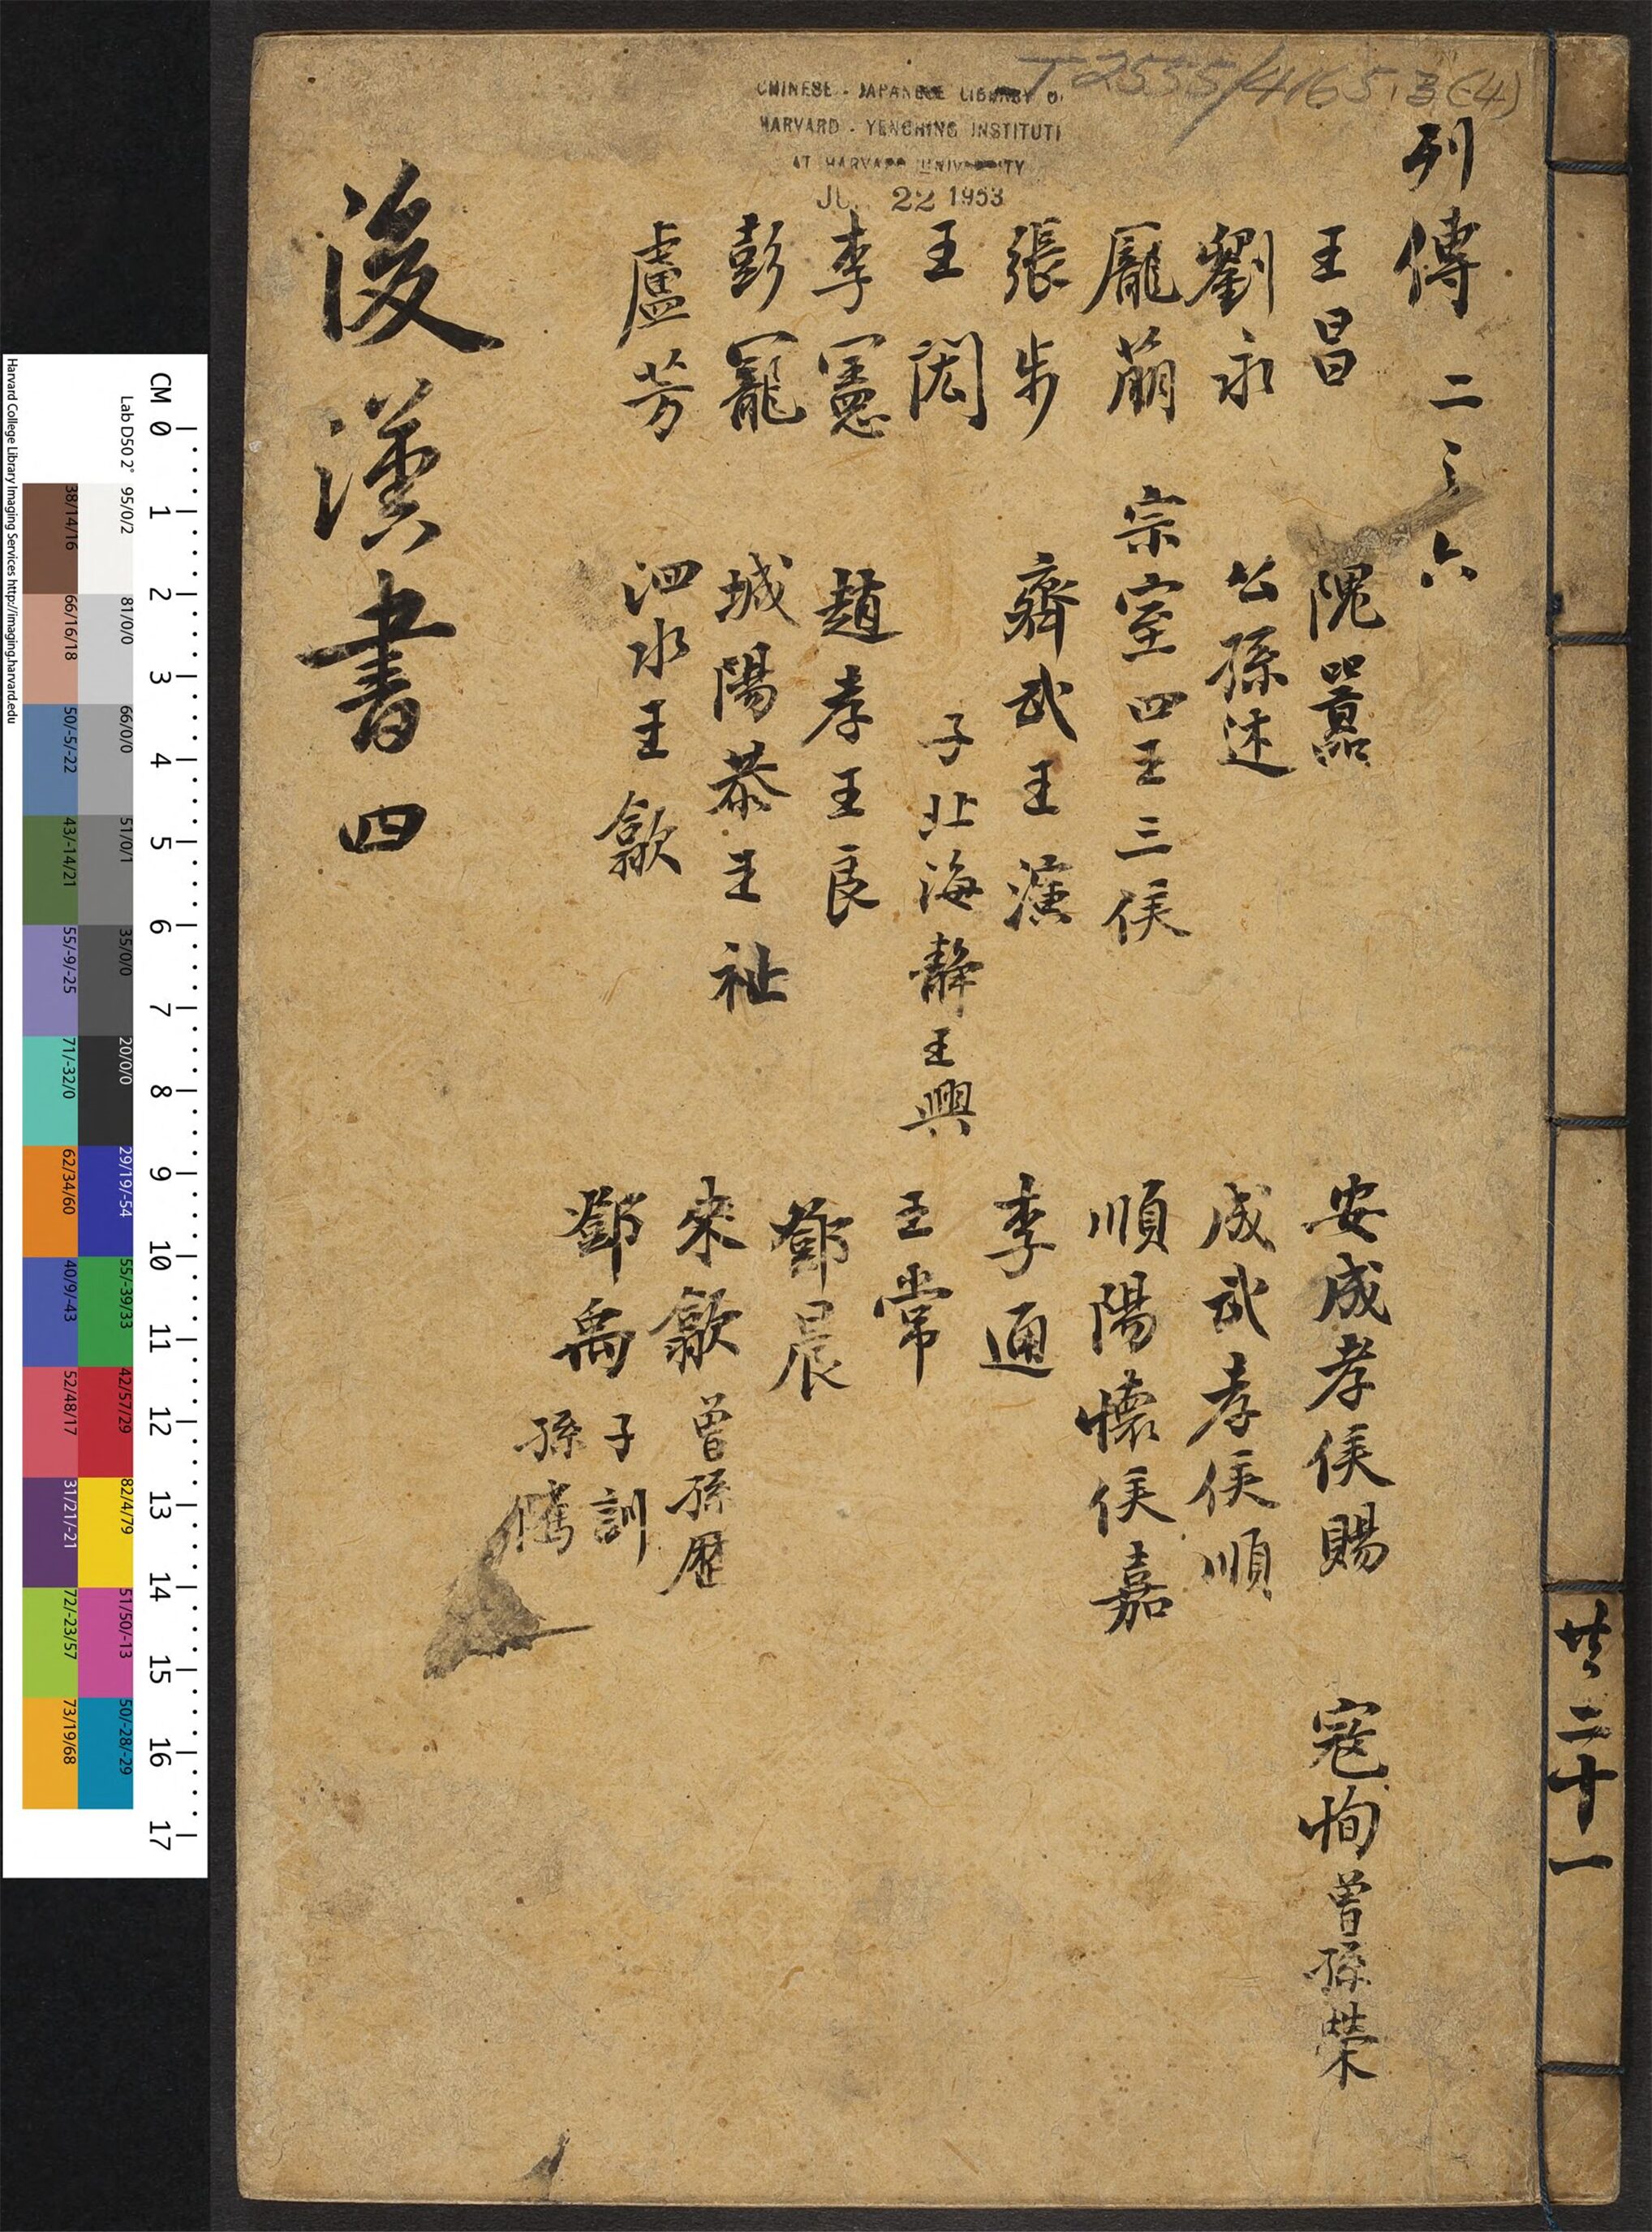 T 2555/4165.3 (4)
CHINESE - JAPANESE LIBRARY OF
HARVARD - YENCHING INSTITUTE
AT HARVARD UNIVERSITY
JUL 22 1953
列傳 二之六
王昌
劉永
龐萌
張步
王閎
李憲
彭寵
盧芳
隗囂
公孫述
宗室四王三侯
齊武王演
子北海靜王興
趙孝王良
城陽恭王祉
泗水王歙
安成孝侯賜
成武孝侯順
順陽懷侯嘉
李通
王常
鄧晨
來歙 曾孫歷
鄧禹 子訓
孫騭
寇恂 曾孫榮
後漢書 四
共二十一
CM 0 1 2 3 4 5 6 7 8 9 10 11 12 13 14 15 16 17
Lab D50 2°
95/0/2
81/0/0
66/0/0
51/0/1
35/0/0
20/0/0
29/19/-54
55/-39/33
42/57/29
82/4/79
51/50/-13
50/-28/-29
38/14/16
66/16/18
50/-5/-22
43/-14/21
55/-9/-25
71/-32/0
62/34/60
40/9/-43
52/48/17
31/21/-21
72/-23/57
73/19/68
Harvard College Library Imaging Services http://imaging.harvard.edu